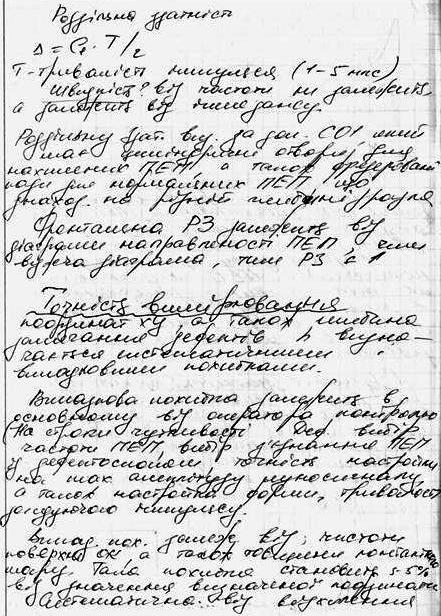 Роздільна здатність
Δ = C₂ · T/2
T - тривалість импульса (1-5 мкс)
швидкість? від частоти не залежить,
а залежить від импедансу.
Роздільну здат. виз. за доп. СО1 який
має циліндричні отвори, для
нахилених ПЕП, а також фрезеровані
пази для нормальних ПЕП, що
знаход. на різній глибині
Фронтальна РЗ залежить від
діаграми направленості ПЕП, чим
вужча діаграма, тим РЗ
Точність вимірювання
координат х у, а також глибина
залягання дефектів h визна-
чається систематичними і
випадковими похибками.
Випадкова похибка залежить в
основному від оператора контролю
(Настройки чутливості Деф, вибір
частоти ПЕП, вибір з'єднання ПЕП
з дефектоскопом, точність настройки
на мах амплітуду луносигналу
а також настройка форми, тривалості
зондуючого импульсу.
Випад. пох. залеж від: чистоти
поверхні ок а також товщини контактного
шару. Така похибка становить 5%
від значення визначеної координати
Систематична: від